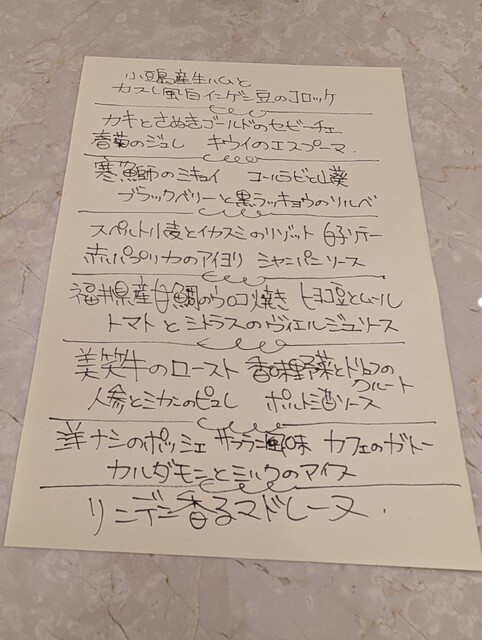 小豆島産生ハムと
カスレ風白インゲン豆のコロッケ
カキとさぬきゴールドのセビーチェ
春菊のジュレ キウイのエスプーマ
寒鰤のミキュイ コールラビと山葵
ブラックベリーと黒ラッキョウのソルベ
スペルト小麦とイカスミのリゾット 白子ソテー
赤パプリカのアイヨリ シャンパンソース
福井県産甘鯛のウロコ焼き ヒヨコ豆とムール
トマトとシトラスのヴェルジュソース
美笑牛のロースト 香味野菜と
クルート
人参とミカンのピュレ ポルト酒ソース
洋ナシのポッシェ サフラン風味 カフェのガトー
カルダモンとミルクのアイス
リンデン香るマドレーヌ.